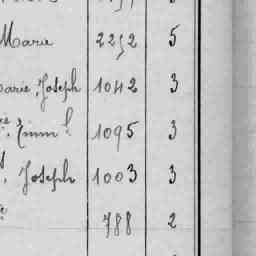 Marie 2252 5
Joseph 1042 3
1095 3
Joseph 1003 3
788 2